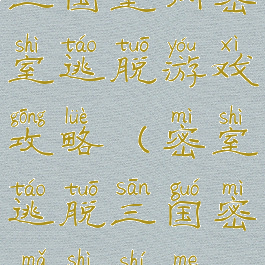 三国奎州密
shì táo tuō yóu xì
室逃脱游戏
gōng lüè mì shì
攻略（密室
táo tuō sān guó mì
逃脱三国密
mǎ shì shí me